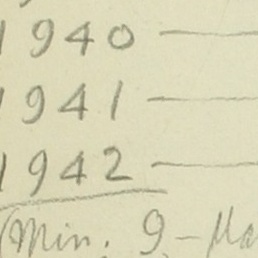 1940 —
1941 —
1942 —
(Min. 9 - Ma